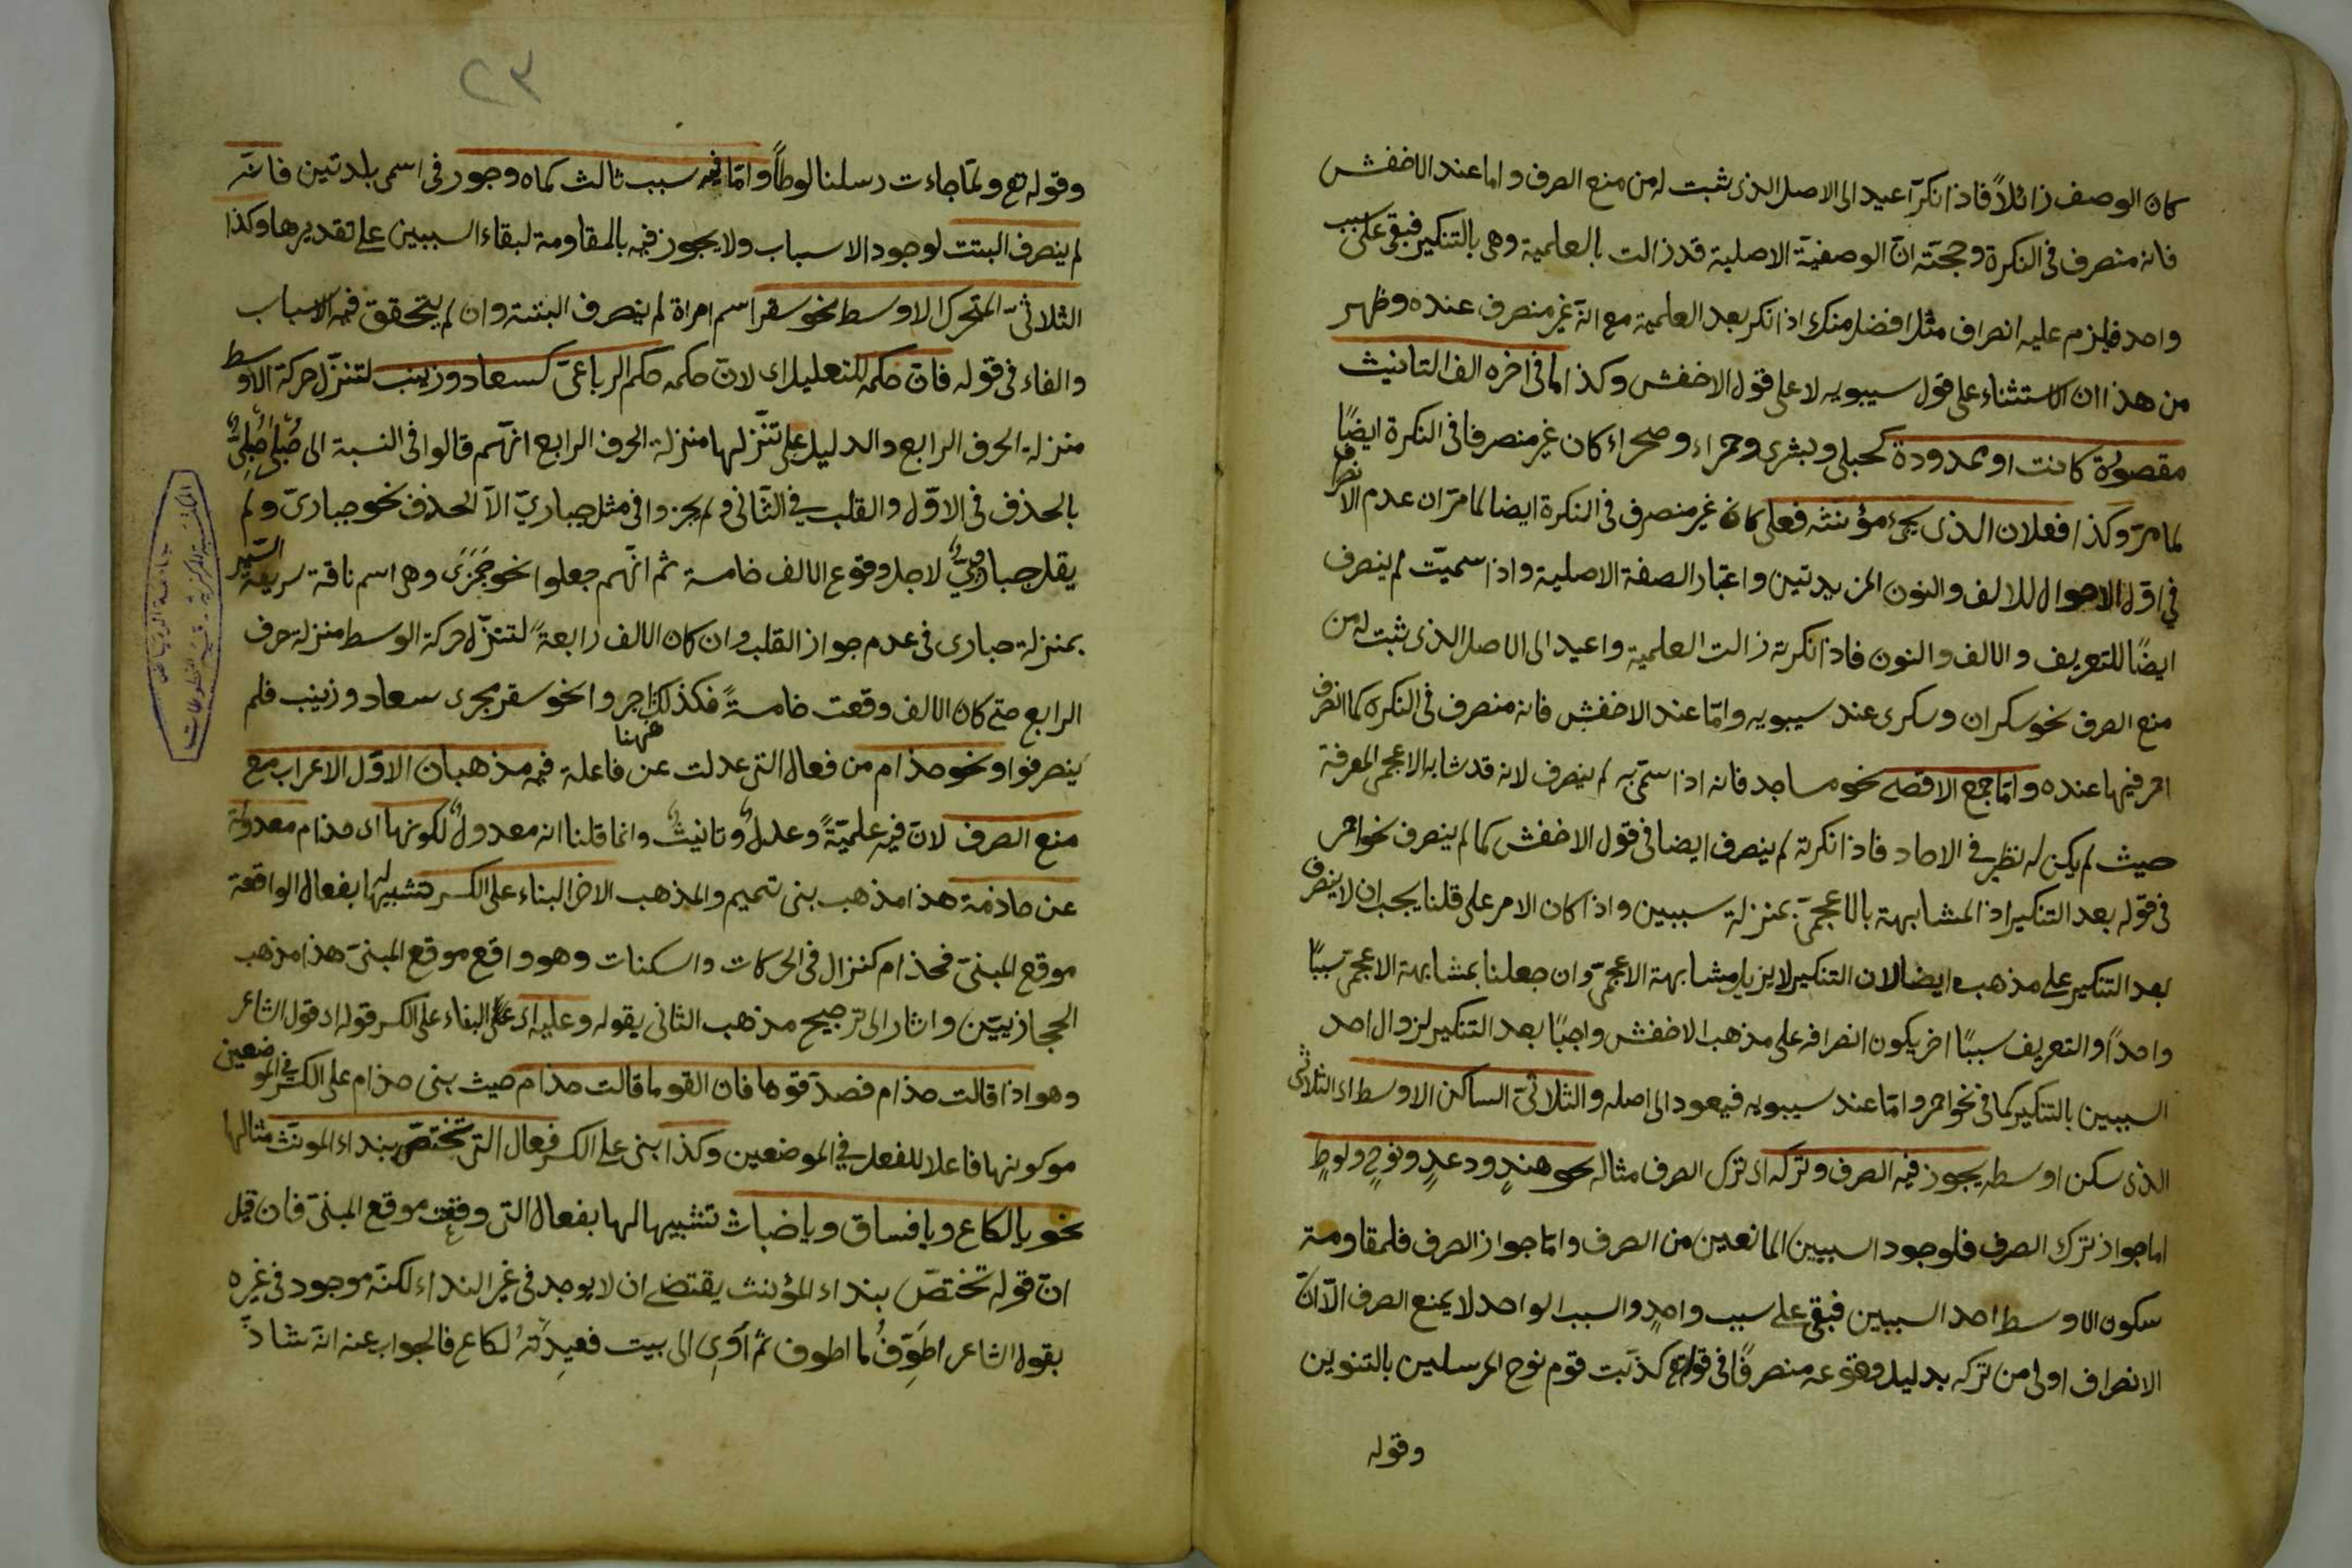 كان الوصف زائلاً فاذا نكر اعيد الى الاصل الذى ثبت له من منع الصرف واما عند الاخفش
فانه منصرف فى النكرة وحجته انّ الوصفيّة الاصلية قد زالت بالعلمية وهى بالتنكير فبقى على سبب
واحد فيلزم عليه انصراف مثل افضل منك اذا نكر بعد العلمية مع انّه غير منصرف عنده وظهر
من هذا ان الاستثناء على قول سيبويه لا على قول الاخفش وكذا ما فى اخره الف التانيث
مقصورة كانت او ممدودة كحبلى وبشرى وحمراء وصحراء كان غير منصرفا فى النكرة ايضًا
لما مرّ وكذا فعلان الذى يجئ مؤنثه فعلى كان غير منصرف فى النكرة ايضا لما مرّ ان عدم الانصراف
فى اوّل الاحوال للالف والنون المزيدتين واعتبار الصفة الاصلية واذا سميّت لم ينصرف
ايضًا للتعريف والالف والنون فاذا نكرته زالت العلمية واعيد الى الاصل الذى ثبت له من
منع الصرف نحو سكران وسكرى عند سيبويه وامّا عند الاخفش فانه منصرف فى النكرة كما انصرف
احمر فيها عنده وامّا جمع الاقصى نحو مساجد فانه اذا سمّى به لم ينصرف لانه قد شابه الاعجمى المعرفة
حيث لم يكن له نظير فى الاحاد فاذا نكرته لم ينصرف ايضا فى قول الاخفش كما لم ينصرف نحو احمر
فى قوله بعد التنكير اذ المشابهة بالاعجمىّ بمنزلة سببين واذا كان الامر على قلنا يجب ان لا ينصرف
بعد التنكير على مذهب ايضا لان التنكير لا يزيل مشابهة الاعجمىّ وان جعلنا بمشابهة الاعجمىّ سببًا
واحداً والتعريف سببًا اخر يكون انصرافه على مذهب الاخفش واجبًا بعد التنكير لزوال احد
السببين بالتنكير كما فى نحو احمر وامّا عند سيبويه فيعود الى اصله والثلاثىّ الساكن الاوسط اى الثلاثى
الذى سكن اوسطه يجوز فيه الصرف وتركه اى ترك الصرف مثاله نحو هندٍ ودعدٍ ونوحٍ ولوطٍ
اما جواز ترك الصرف فلوجود السببين المانعين من الصرف وامّا جواز الصرف فلمقاومة
سكون الاوسط احد السببين فبقى على سبب واحدٍ والسبب الواحد لا يمنع الصرف الّا انّ
الانصراف اولى من تركه بدليل وقوعه منصرفًا فى قوله تع كذّبت قوم نوح المرسلين بالتنوين
وقوله
٢٣
وقوله تع ولمّا جاءت رسلنا لوطاً وامّا فيه سبب ثالث كماه وجور فى اسمى بلدتين فانّه
لم ينصرف البتت لوجود الاسباب ولا يجوز فيه بالمقاومة لبقاء السببين على تقديرها وكذا
الثلاثىّ المتحرك الاوسط نحو سقر اسم امراة لم ينصرف البتة وان لم يتحقق فيه الاسباب
والفاء فى قوله فانّ حكمه للتعليل اى لانّ حكمه حكم الرباعىّ كسعاد وزينب لتنزّل حركة الاوسط
منزلة الحرف الرابع والدليل على تنّزلها منزلة الحرف الرابع انّهم قالوا فى النسبة الى حُبْلى حُبْلِىٌّ
بالحذف فى الاوّل والقلب فى الثّانى ولم يجزوا فى مثل حبارىّ الّا الحذف نحو حبارىّ ولم
يقل حباروىٌّ لاجل وقوع الالف خامسة ثم انّهم جعلوا نحو جَمَزَى وهى اسم ناقة سريعة السّير
بمنزلة حبارى فى عدم جواز القلب وان كان الالف رابعةً لتنزّل حركة الوسط منزلة حرف
الرابع حتى كان الالف وقعت خامسةً فكذلك ههنا اجروا نحو سقر مجرى سعاد وزينب فلم
ينصرفوا ونحو حذام من فعال التى عدلت عن فاعلة فيه مذهبان الاوّل الاعراب مع
منع الصرف لانّ فيه علميّةً وعدلٌ وتانيثٌ وانما قلنا انه معدولٌ لكونها اى حذام معدولة
عن حاذمة هذا مذهب بنى تميم والمذهب الاخر البناء على الكسر تشبيها لها بفعال الواقعة
موقع المبنىّ فحذام كنزال فى الحركات والسكنات وهو واقع موقع المبنىّ هذا مذهب
الحجازييّن واشار الى ترجيح مذهب الثانى بقوله وعليه اى على البناء على الكسر قوله اى قول الشاعر
وهو اذا قالت حذام فصدّقوها فان القول ما قالت حذام حيث بنى حذام على الكسر فى الموضعين
مو كونها فاعلا للفعل فى الموضعين وكذا بنى على الكسر فعال التى تختصّ بنداء المونّث مثالها
نحو يا لكاع ويا فساق ويا خباث تشبيها لها بفعال التى وقعت موقع المبنىّ فان قيل
انّ قوله تختصّ بنداء المؤنث يقتضى ان لا يوجد فى غير النداء لكنّه موجود فى غيره
بقول الشاعر اُطَوِّفُ ما اطوف ثمّ آوِى الى بيت قعيدَتُه لكاع فالجواب عنه انّه شاذّ